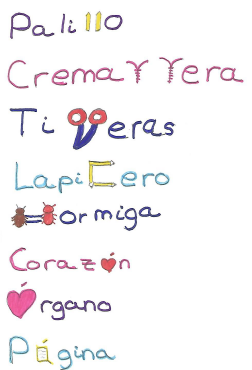 Palillo
Cremallera
Tijeras
Lapicero
Hormiga
Corazón
Órgano
Página